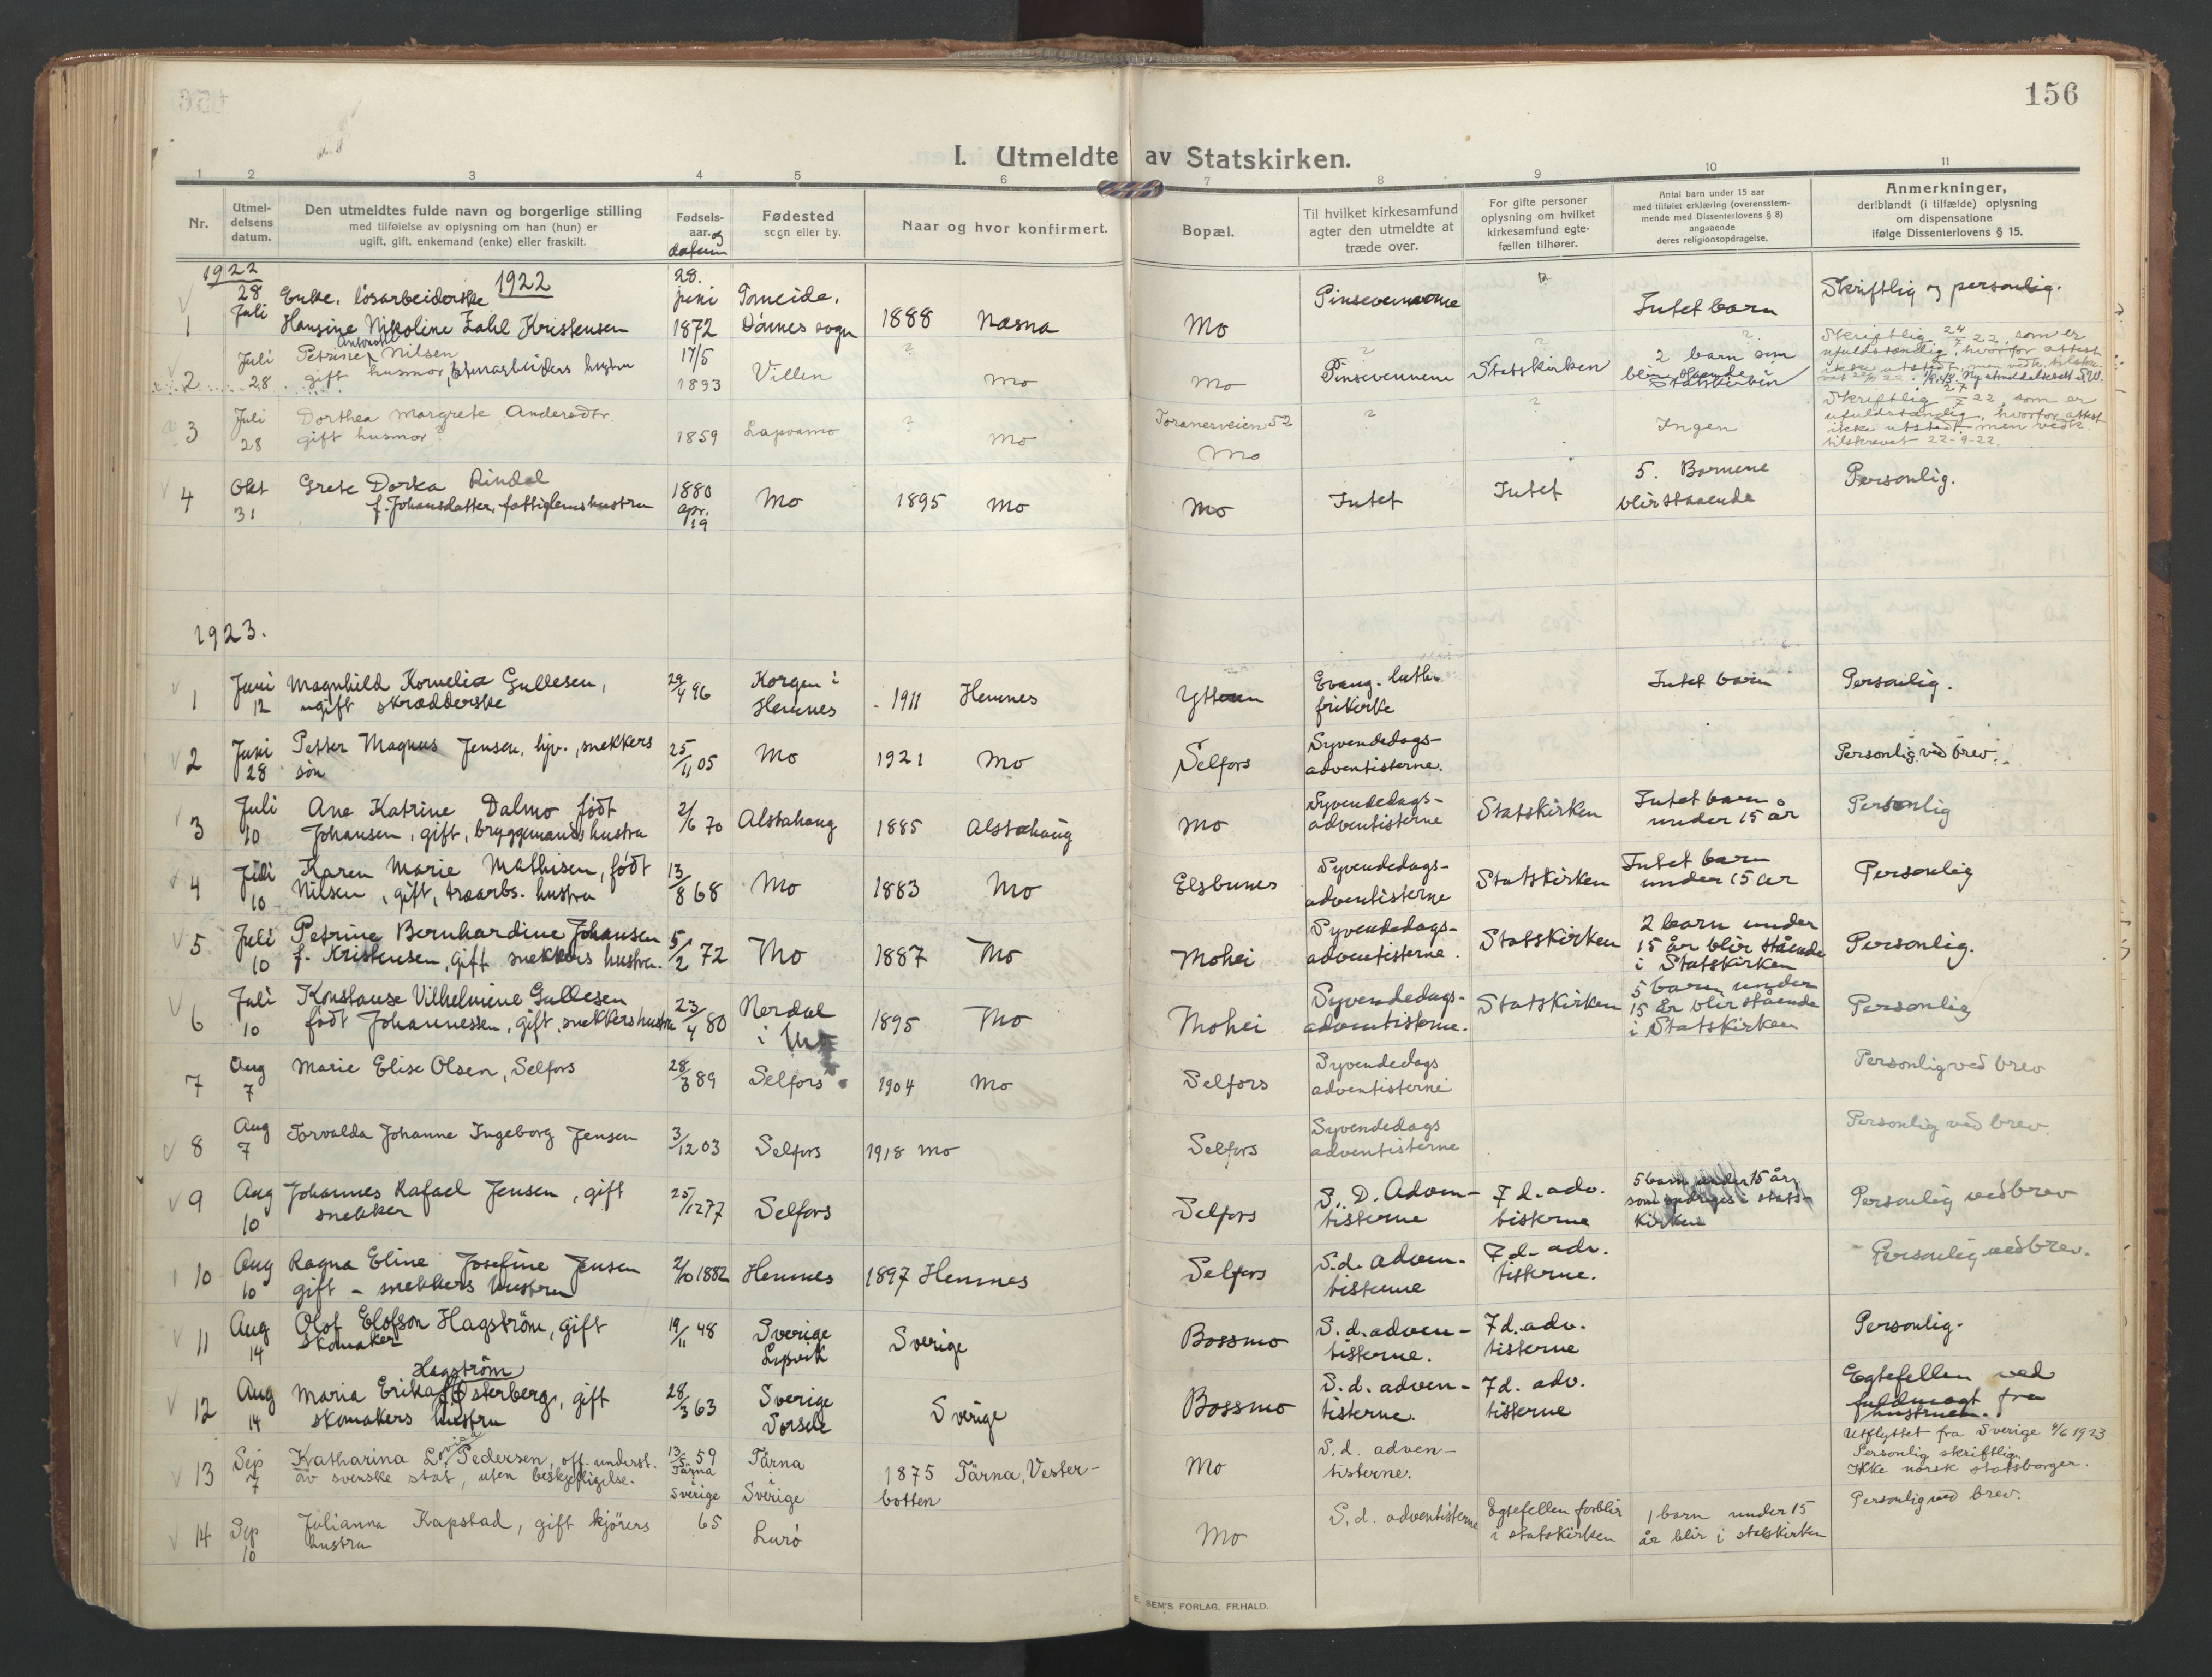 156
I. Utmeldte av Statskirken.
1 2 3 4 5 6 7 8 9 10 11
Nr.
Utmel-
delsens
datum.
Den utmeldtes fulde navn og borgerlige stilling
med tilføielse av oplysning om han (hun) er
ugift, gift, enkemand (enke) eller fraskilt.
Fødsels-
aar. og
datum
Fødested
sogn eller by.
Naar og hvor konfirmert.
Bopæl.
Til hvilket kirkesamfund
agter den utmeldte at
træde over.
For gifte personer
oplysning om hvilket
kirkesamfund egte-
fællen tilhører.
Antal barn under 15 aar
med tilføiet erklæring (overensstem-
mende med Dissenterlovens § 8)
angaaende
deres religionsopdragelse.
Anmerkninger,
deriblandt (i tilfælde) oplysning
om dispensatione
ifølge Dissenterlovens § 15.
1922
1922
1 28 Juli Enke, løsarbeiderske
Hansine Nikoline Zahl Kristensen 28. juni 1872 Tomeide, Dønnes sogn 1888 Nesna Mo Pinsevennerne Intet barn Skriftlig og personlig.
2 Juli 28 Petrine Antonette Nilsen
gift husmor, stenarbeiders hustru 17/5 1893 Villen ? Mo Mo ? Pinsevennene ? Statskirken ? 2 barn som
blir staaende
Statskirken
Skriftlig 24/7 22, som er
ufuldstændig, hvorfor attest
ikke utstedt, men vedk. tilskre-
vet 22/9 22. Ny utmeldelse
3 Juli 28 Dorthea Margrete Andersdtr.
gift husmor? 1859 Lapvamo ? Mo Toranesveien 52
Mo ? ? Ingen
Skriftlig 2/7 22, som er
ufuldstændig, hvorfor attest
ikke utstedt men vedk.
tilskrevet 22-9-22.
4 Okt 31 Grete Dorka Rindal
f. Johansdatter, fattiglemshustru 1880 apr. 19 Mo 1895 Mo Mo Intet Intet 5. Barnene
blir staaende Personlig.
1923.
1 Juni 12 Magnhild Kornelia Gullesen,
ugift skrædderske 29/4 96 Korgen i
Hemnes 1911 Hemnes Ytteren Evang. luth.
frikirke Intet barn Personlig.
2 Juni 28 Petter Magnus Jensen, hjv., snekkers
søn 25/11 05 Mo 1921 Mo Selfors Syvendedags-
adventisterne. Personlig ved brev.
3 Juli 10 Ane Katrine Dalmo født
Johansen, gift, bryggmands hustru 2/6 70 Alstahaug 1885 Alstahaug Mo Syvendedags-
adventisterne Statskirken Intet barn
under 15 år Personlig
4 Juli 10 Karen Marie Mathisen, født
Nilsen, gift, traarbs. hustru 13/8 68 Mo 1883 Mo Elsbunes Syvendedags-
adventisterne Statskirken Intet barn
under 15 aer Personlig
5 Juli 10 Petrine Bernhardine Johansen
f. Kristensen, gift snekkers hustru. 5/2 72 Mo 1887 Mo Mohei Syvendedags-
adventisterne. Statskirken 2 barn under
15 år blir stående
i Statskirken Personlig.
6 Juli 10 Konstanse Vilhelmine Gullesen
født Johannessen, gift, snekkers hustru 23/4 80 Nerdal
i 1895 Mo Mohei Syvendedags-
adventisterne. Statskirken 5 barn under
15 år blir stående
i Statskirken Personlig
7 Aug 7 Marie Elise Olsen, Selfors 28/3 89 Selfors 1904 Mo Selfors Syvendedags
adventisterne Personlig ved brev
8 Aug 7 Torvalda Johanne Ingeborg Jensen 3/12 03 Selfors 1918 Mo Selfors Syvendedags
adventisterne Personlig ved brev.
9 Aug 10 Johannes Rafael Jensen, gift
snekker 25/12 77 Selfors Selfors S. D. Adven-
tisterne 7 d. adv.
tisterne 5 barn under 15 år
som opdrages i stats-
kirken Personlig ved brev
10 Aug 10 Ragna Eline Josefine Jensen
gift - snekkers hustru 2/10 1882 Hemnes 1897 Hemnes Selfors S.d. adven-
tisterne 7 d. adv.
tisterne. Personlig ved brev.
11 Aug 14 Olof Elofson Hagström, gift
skomaker 19/11 48 Sverige
Lysvik Sverige Bossmo S.d. adven-
tisterne. 7 d. adv.
tisterne Personlig.
12 Aug 14 Hagström
Maria Erika f. Østerberg, gift
skomakers hustru 28/3 63 Sverige
Sorsele Sverige Bossmo S.d. adven-
tisterne. 7 d. adv.
tisterne Egtefellen ved
fuldmagt fra
hustruen.
13 Sep 7 Katharina Lovisa Pedersen, off. underst.
av svenske stat, uten beskjeftigelse. 13/5 59
Tärna
Sverige Tärna
Sverige 1875 Tärna, Vester-
botten Mo S.d. adven-
tisterne. Utflyttet fra Sverige 4/6 1923.
Personlig skriftlig.
Ikke norsk statsborger.
14 Sep 10 Julianna Kapstad, gift kjørers
hustru 65 Lurö Mo S.d. adventisterne Egtefellen forblir
i statskirken 1 barn under 15
år blir i statskirken Personlig ved brev.
E. SEM'S FORLAG, FR.HALD.